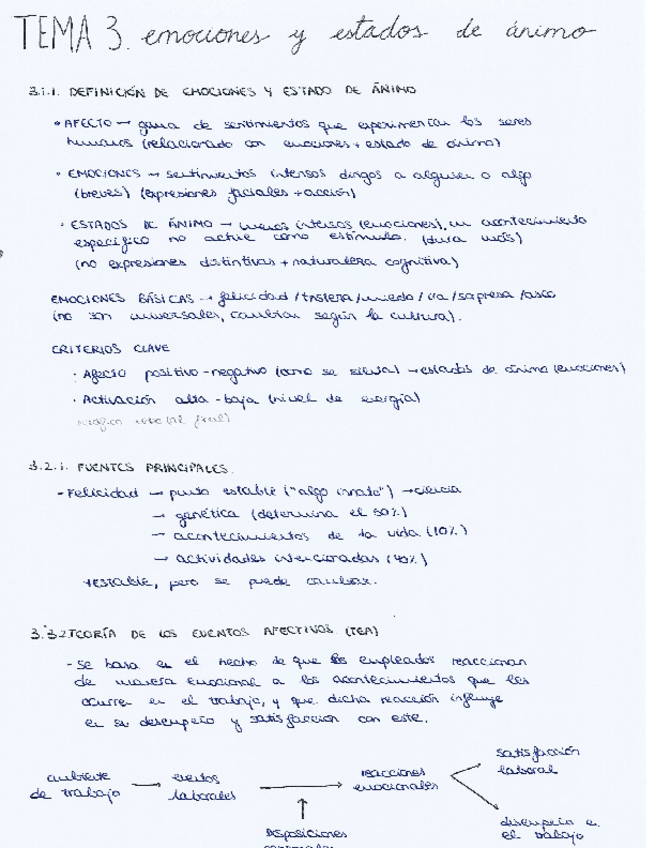 TEMA 3. emociones y estados de ánimo
3.1.1. DEFINICIÓN DE EMOCIONES Y ESTADO DE ÁNIMO
• AFECTO → gama de sentimientos que experimentan los seres
humanos (relacionado con emociones + estado de ánimo)
• EMOCIONES → sentimientos intensos dirigos a alguien o algo
(breves) (expresiones faciales + acción)
• ESTADOS DE ÁNIMO → menos intensos (emociones), un acontecimiento
específico no actúe como estímulo. (dura más)
(no expresiones distintivas + naturaleza cognitiva)
EMOCIONES BÁSICAS → felicidad / tristeza / miedo / ira / sorpresa / asco
(no son universales, cambian según la cultura).
CRITERIOS CLAVE
• Afecto positivo - negativo (como se siente) → estados de ánimo (emociones)
• Activación alta - baja (nivel de energía)
3.2.1. FUENTES PRINCIPALES.
- Felicidad → punto estable ("algo innato") → ciencia
→ genética (determina el 50%)
→ acontecimientos de la vida (10%)
→ actividades intencionadas (40%)
*Estable, pero se puede cambiar.
3.3.2 TEORÍA DE LOS EVENTOS AFECTIVOS (TEA)
- Se basa en el hecho de que los empleados reaccionan
de manera emocional a los acontecimientos que les
ocurre en el trabajo, y que dicha reacción influye
en su desempeño y satisfacción con este.
ambiente de trabajo → eventos laborales → reacciones emocionales
satisfacción laboral
desempeño e. el trabajo
↑
Disposiciones